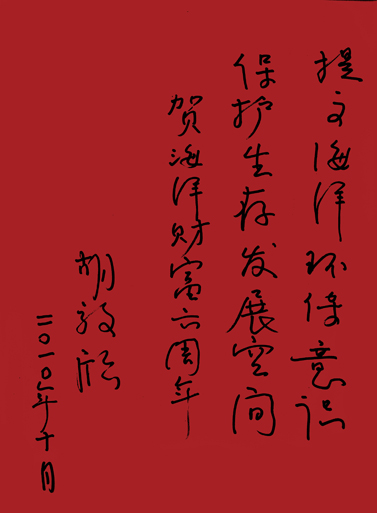 提高海洋环保意识
保护生存发展空间
贺海洋财富六周年
胡敦欣
二〇一〇年十月